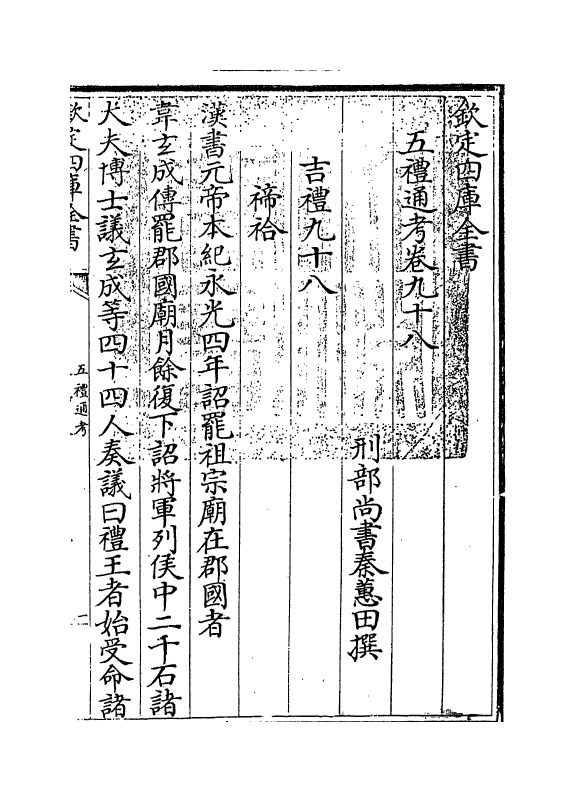 欽定四庫全書
五禮通考卷九十八
刑部尚書秦蕙田撰
吉禮九十八
禘祫
漢書元帝本紀永光四年詔罷祖宗廟在郡國者
韋玄成傳罷郡國廟月餘復下詔將軍列侯中二千石諸
大夫博士議玄成等四十四人奏議曰禮王者始受命諸
欽定四庫全書
五禮通考
一